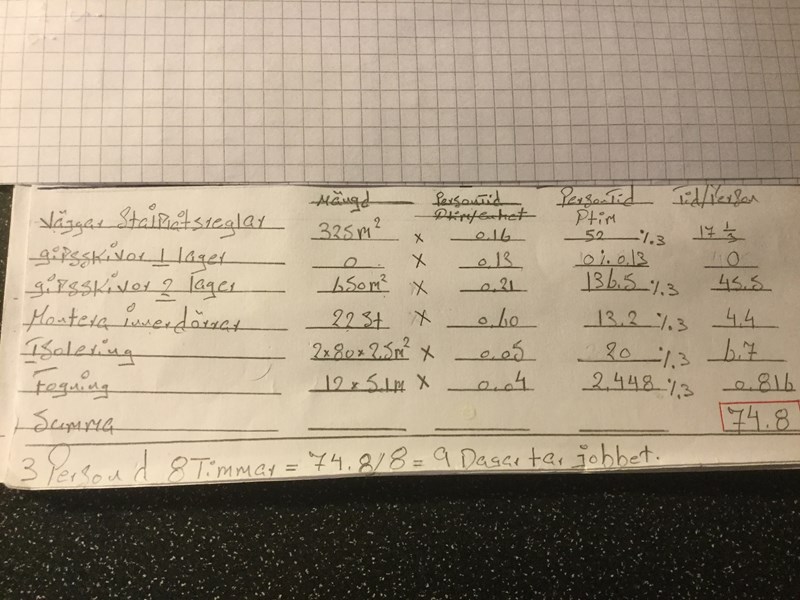 Mängd Persontid Persontid Tid/Person
Ptim/enhet Ptim
Väggar Stålplåtsreglar 325m² x 0.16 52 ./.3 17 1/3
gipsskivor 1 lager 0 x 0.13 0 ./. 0.13 0
gipsskivor 2 lager 650m² x 0.21 136.5 ./.3 45.5
Montera innerdörrar 22 St x 0.60 13.2 ./.3 4.4
Isolering 2x80x2.5m² x 0.05 20 ./.3 6.7
Fogning 12 x 5.1m x 0.04 2.448 ./.3 0.816
Summa 74.8
3 Person á 8 Timmar = 74.8/8 = 9 Dagar tar jobbet.